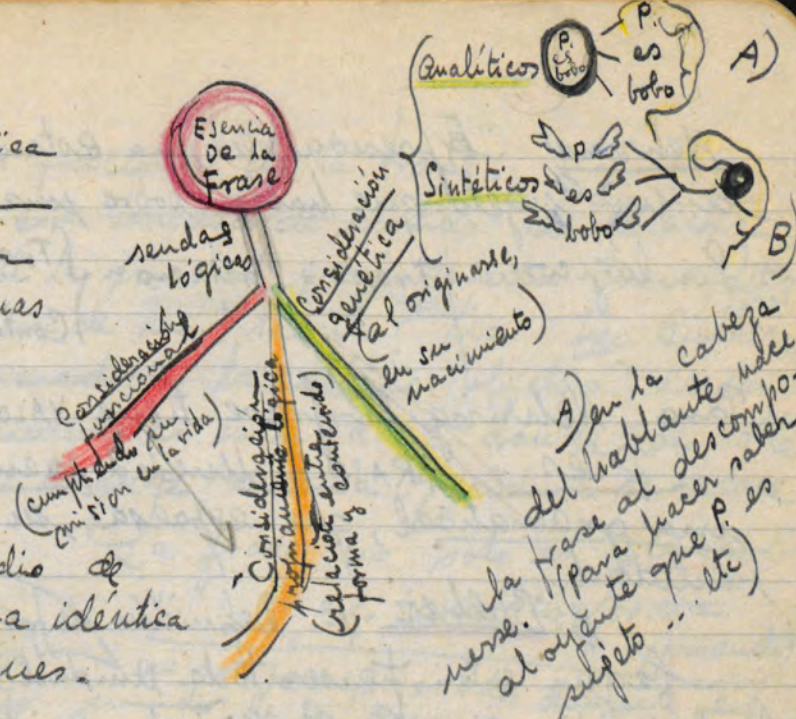 Esencia
De la
Frase
sendas
lógicas
Consideración
funcional
(cumpliendo su
misión en la vida)
Consideración
propiamente lógica
(relación entre
forma y contenido)
Consideración
genética
(al originarse,
en su
nacimiento)
Analíticos
P.
es
bobo
P.
es
bobo
A)
Sintéticos
P
es
bobo
B)
A) en la cabeza
del hablante nace
la frase al descompo-
nerse. (para hacer saber
al oyente que P. es
sujeto ... etc)
dio de
a idéntica
ues.